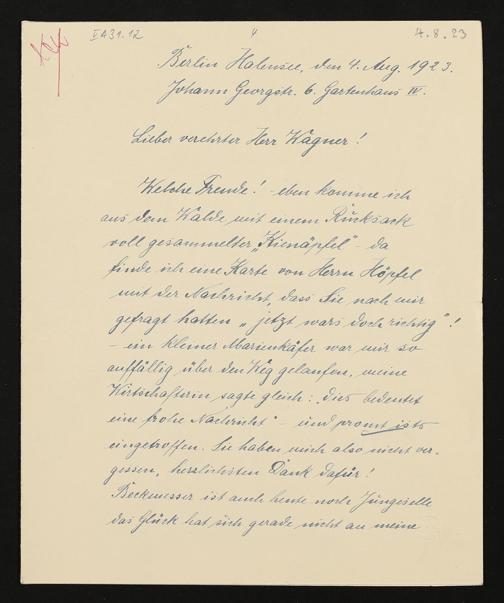 IV A 31.12 4 4.8.23
Berlin Halensee, den 4. Aug. 1923.
Johann Georgstr. 6. Gartenhaus IV.
Lieber verehrter Herr Wagner!
Welche Freude! - eben komme ich
aus dem Walde mit einem Rücksack
voll gesammelter „Kienäpfel" - da
finde ich eine Karte von Herrn Höpfel
mit der Nachricht, dass Sie nach mir
gefragt hatten „jetzt wars doch richtig"!
- ein kleiner Marienkäfer war mir so
auffällig über den Weg gelaufen, meine
Wirtschafterin sagte gleich: „dies bedeutet
eine frohe Nachricht" - und promt ists
eingetroffen. Sie haben mich also nicht ver-
gessen, herzlichsten Dank dafür!
Beckmesser ist auch heute noch Junggeselle
das Glück hat sich gerade nicht an meine